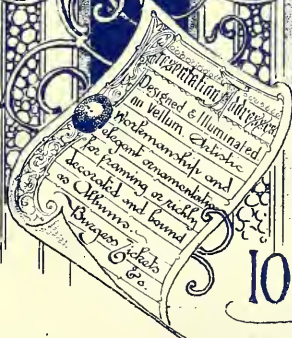 Presentation Addresses
Designed & Illuminated
on Vellum. Artistic
Workmanship and
elegant ornamentation
for framing or richly
decorated and bound
as Albums.
Burgess Tickets
&c.
10